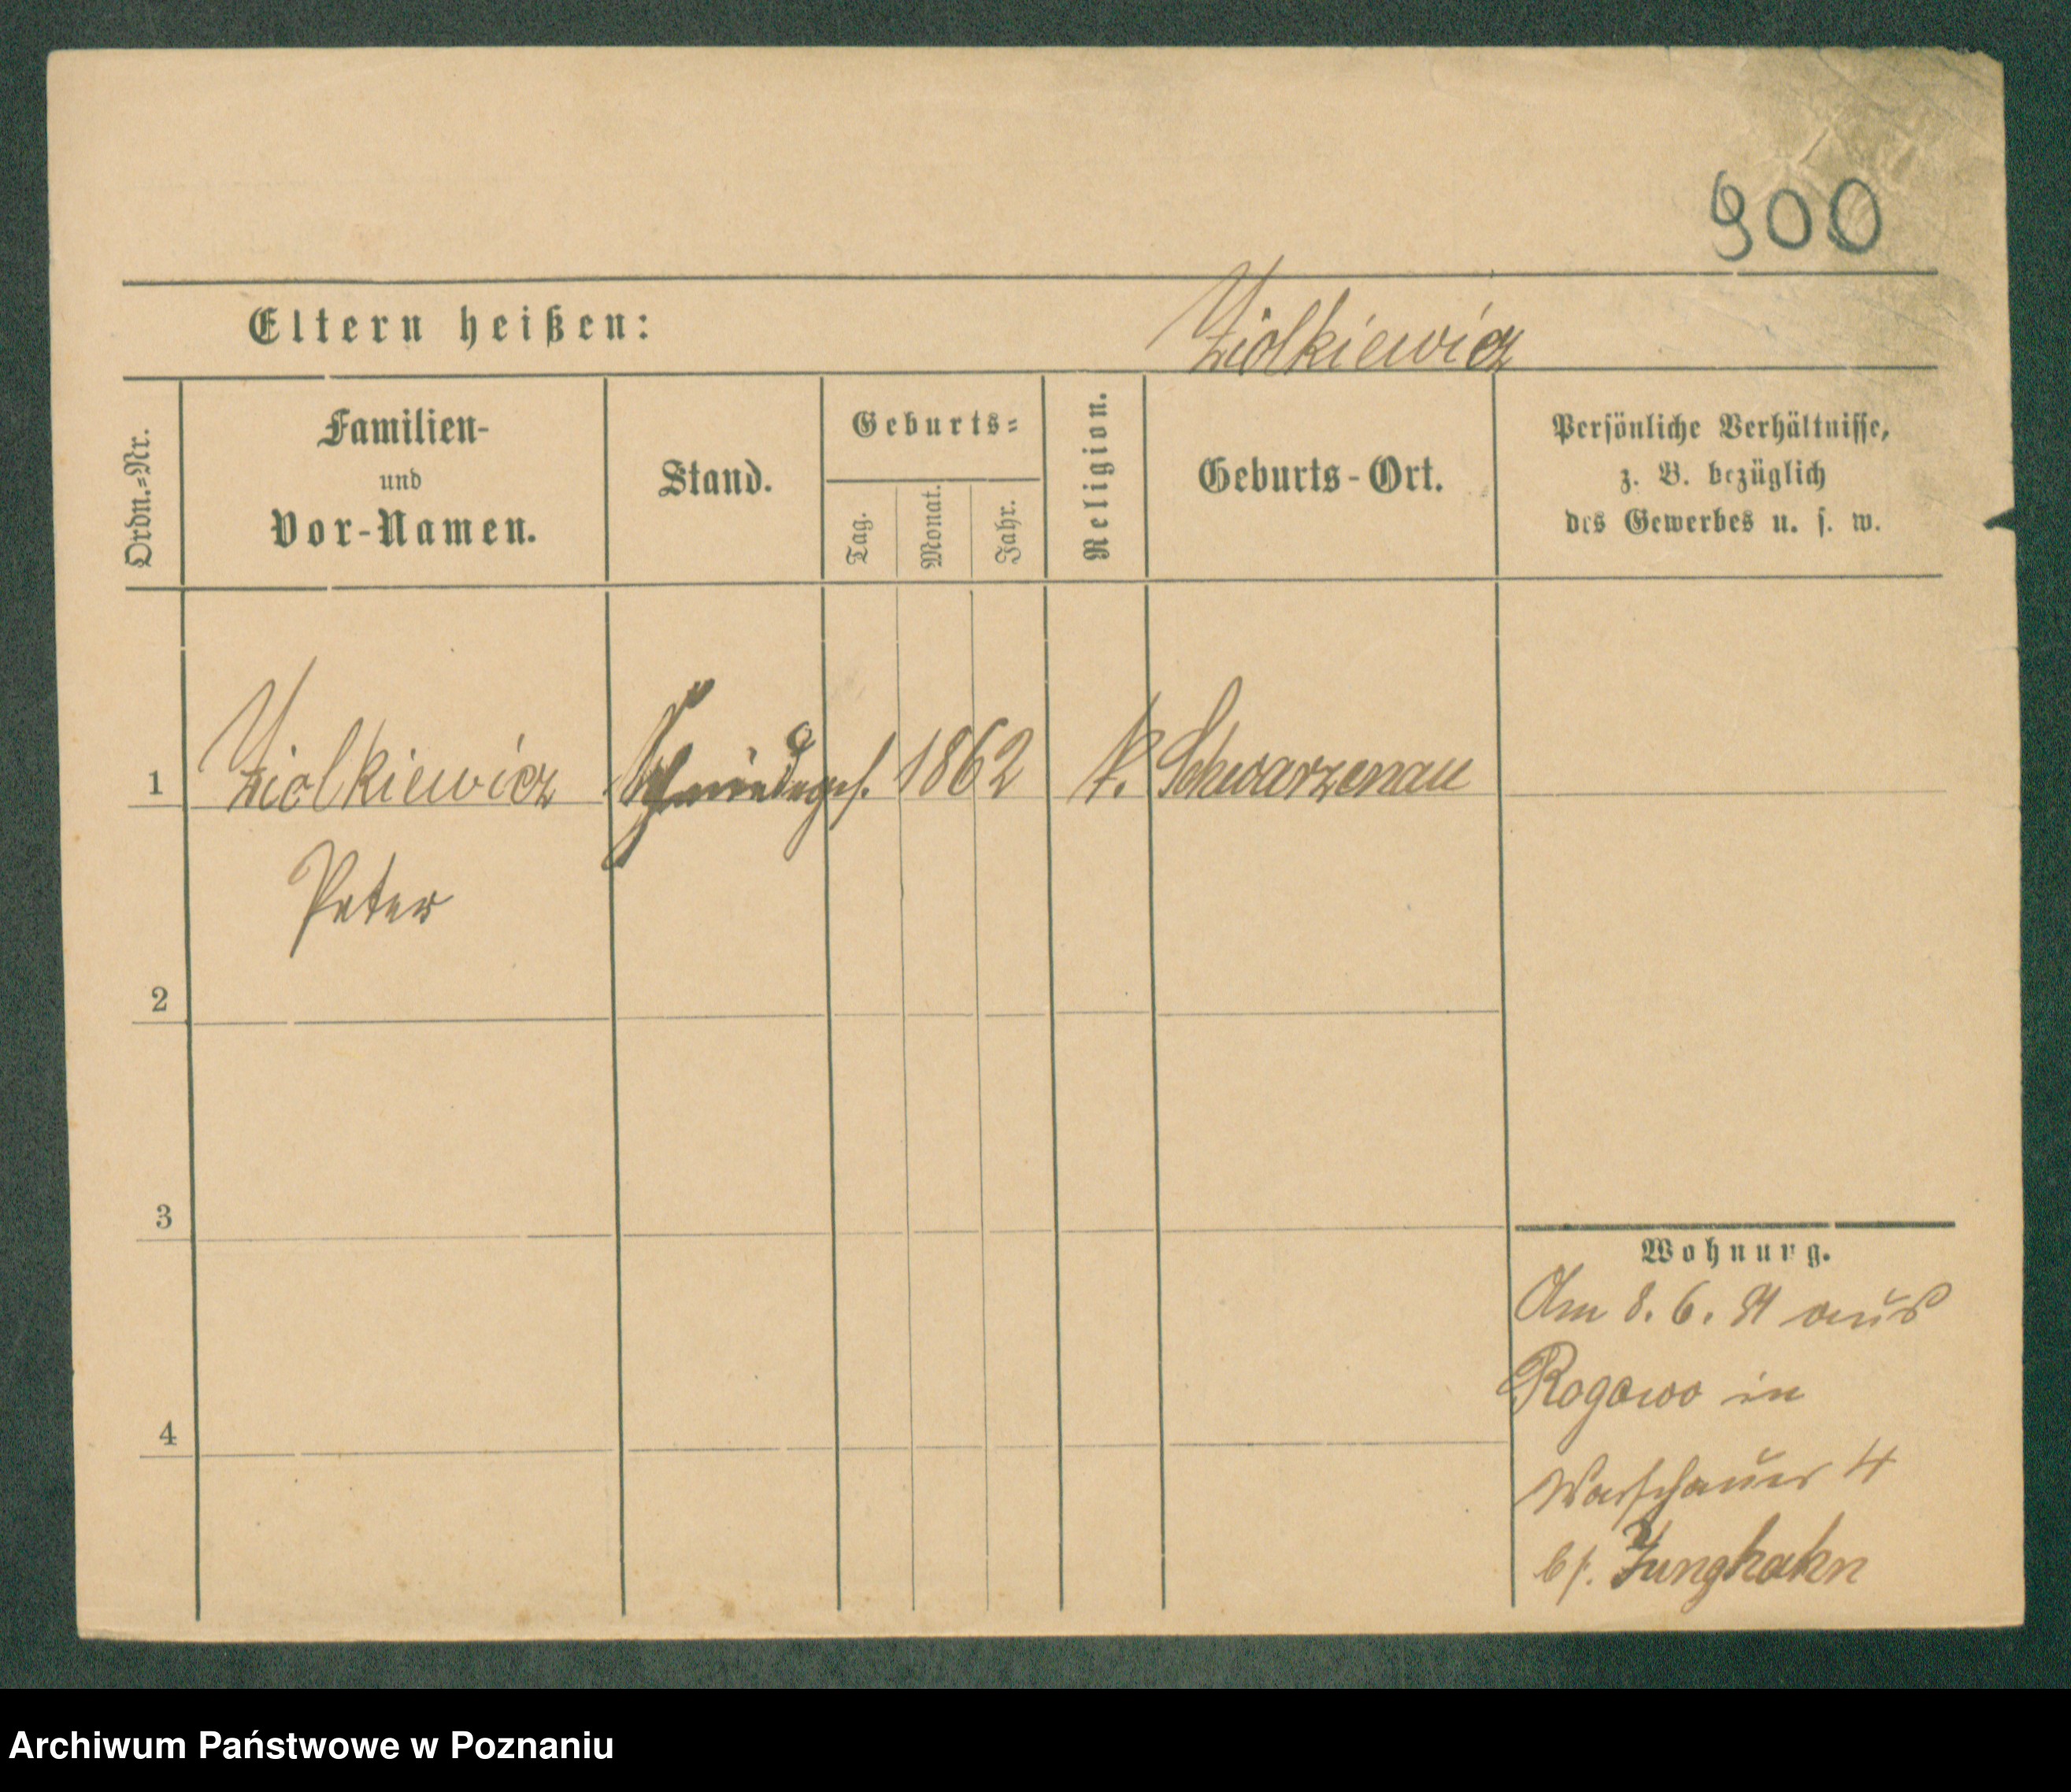 900
Eltern heißen: Ziolkiewicz
Ordn.=Nr.
Familien-
und
Vor-Namen.
Stand.
Geburts=
Tag.
Monat.
Jahr.
Religion.
Geburts-Ort.
Persönliche Verhältnisse,
z. B. bezüglich
des Gewerbes u. s. w.
1 Ziolkiewicz Schmiedeges. 1862 k. Schwarzenau
Peter
2
3
4
Wohnung.
Am 8. 6. 91 aus
Rogowo in
Warschauer 4
b/. Junghahn
Archiwum Państwowe w Poznaniu